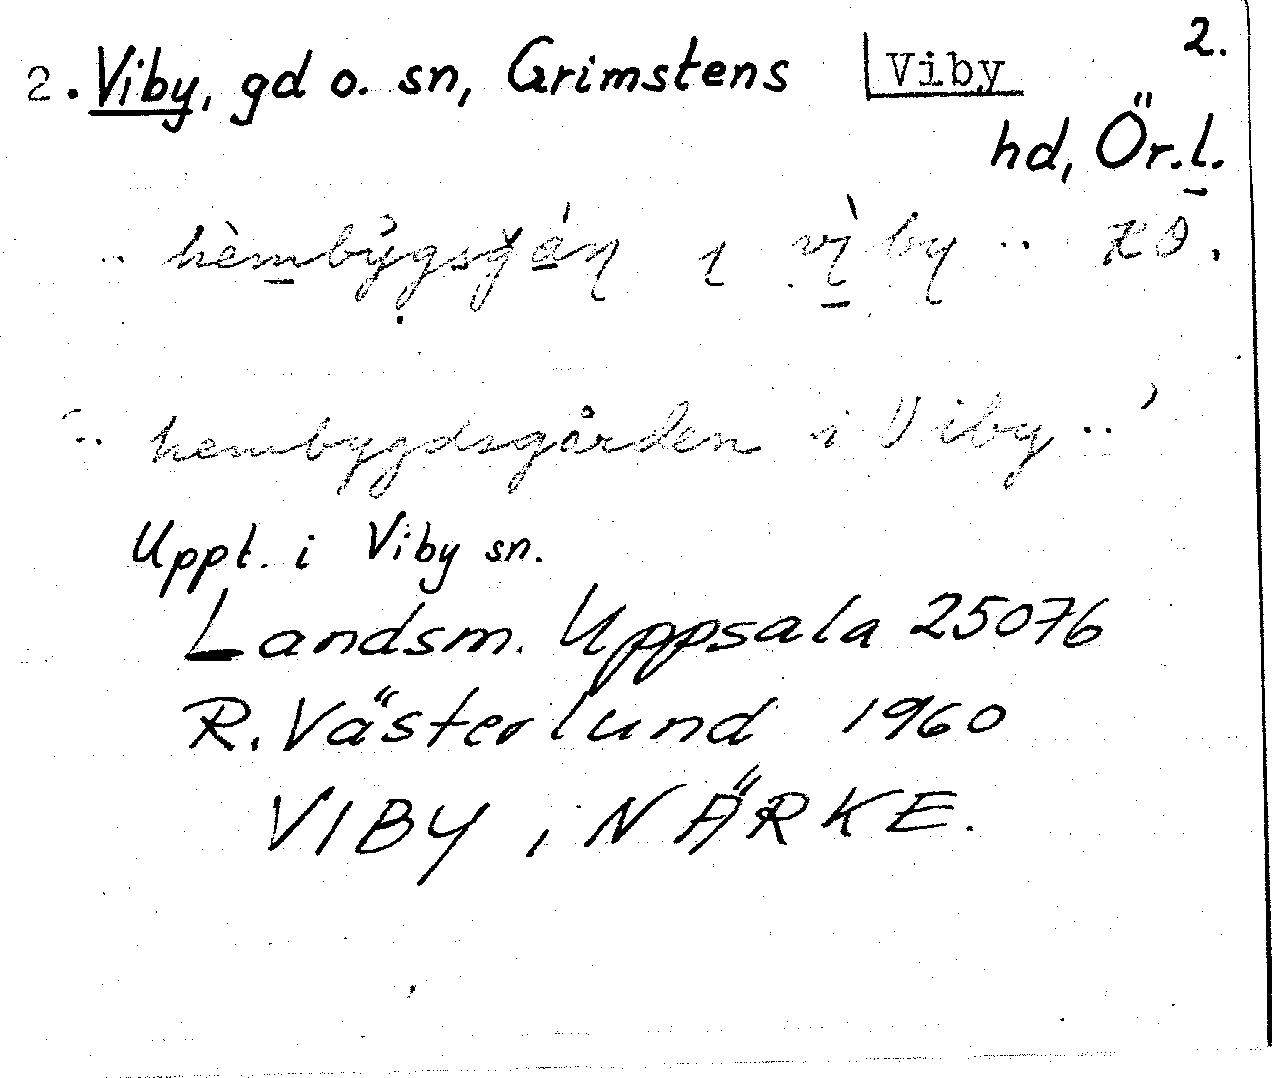 2.
2. Viby, gd o. sn, Grimstens Viby
hd, Ör.l.
.. i vì̠by ..
".. hembygdsgården i Viby .."
Uppt. i Viby sn.
Landsm. Uppsala 25076
R. Västerlund 1960
VIBY i NÄRKE.